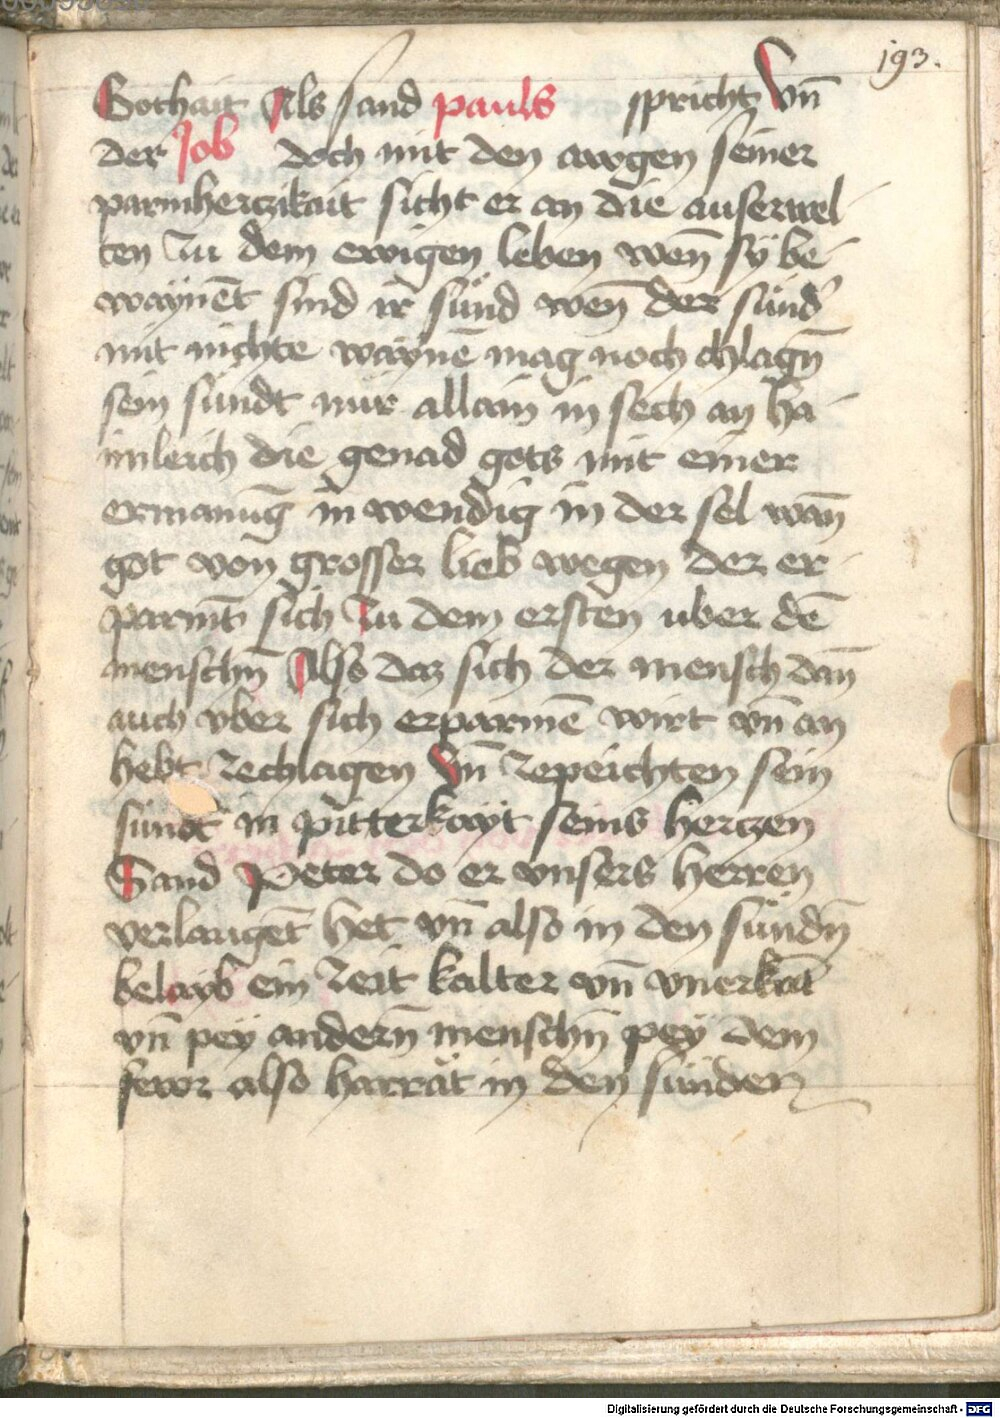 193.
Gothait Als sand pauls spricht Vn̄
der Job doch mit den awgen seiner
parmherczikait sicht er an die auserwel
ten zu dem ewigen leben wen̄ sÿ be-
waÿnēt sind ir sünd wen̄ der sünd'
mit nichte waÿnē mag noch chlagn̄
sein sündt nür allain in sech an ha-
imleich die genad gots mit einer
ermanūg in wendig in der sel wan̄
got von grosser lieb wegen der er-
parmt sich zu dem ersten uber dē
menschn̄ Also daz sich der mensch dan̄
auch vber sich erparmē wirt vn̄ an
hebt zechlagen Vn̄ zepeichten sein
sundt in pitterkayt seins herczen
Sand Peter do er vnsers herren
verlaugēt het vn̄ also in den sündn̄
belayb ein zeit kalter vn̄ vnerkāt
vn̄ peÿ andern̄ menschn̄ peÿ dem
fewr also harrät in den sünden
Digitalisierung gefördert durch die Deutsche Forschungsgemeinschaft - DFG